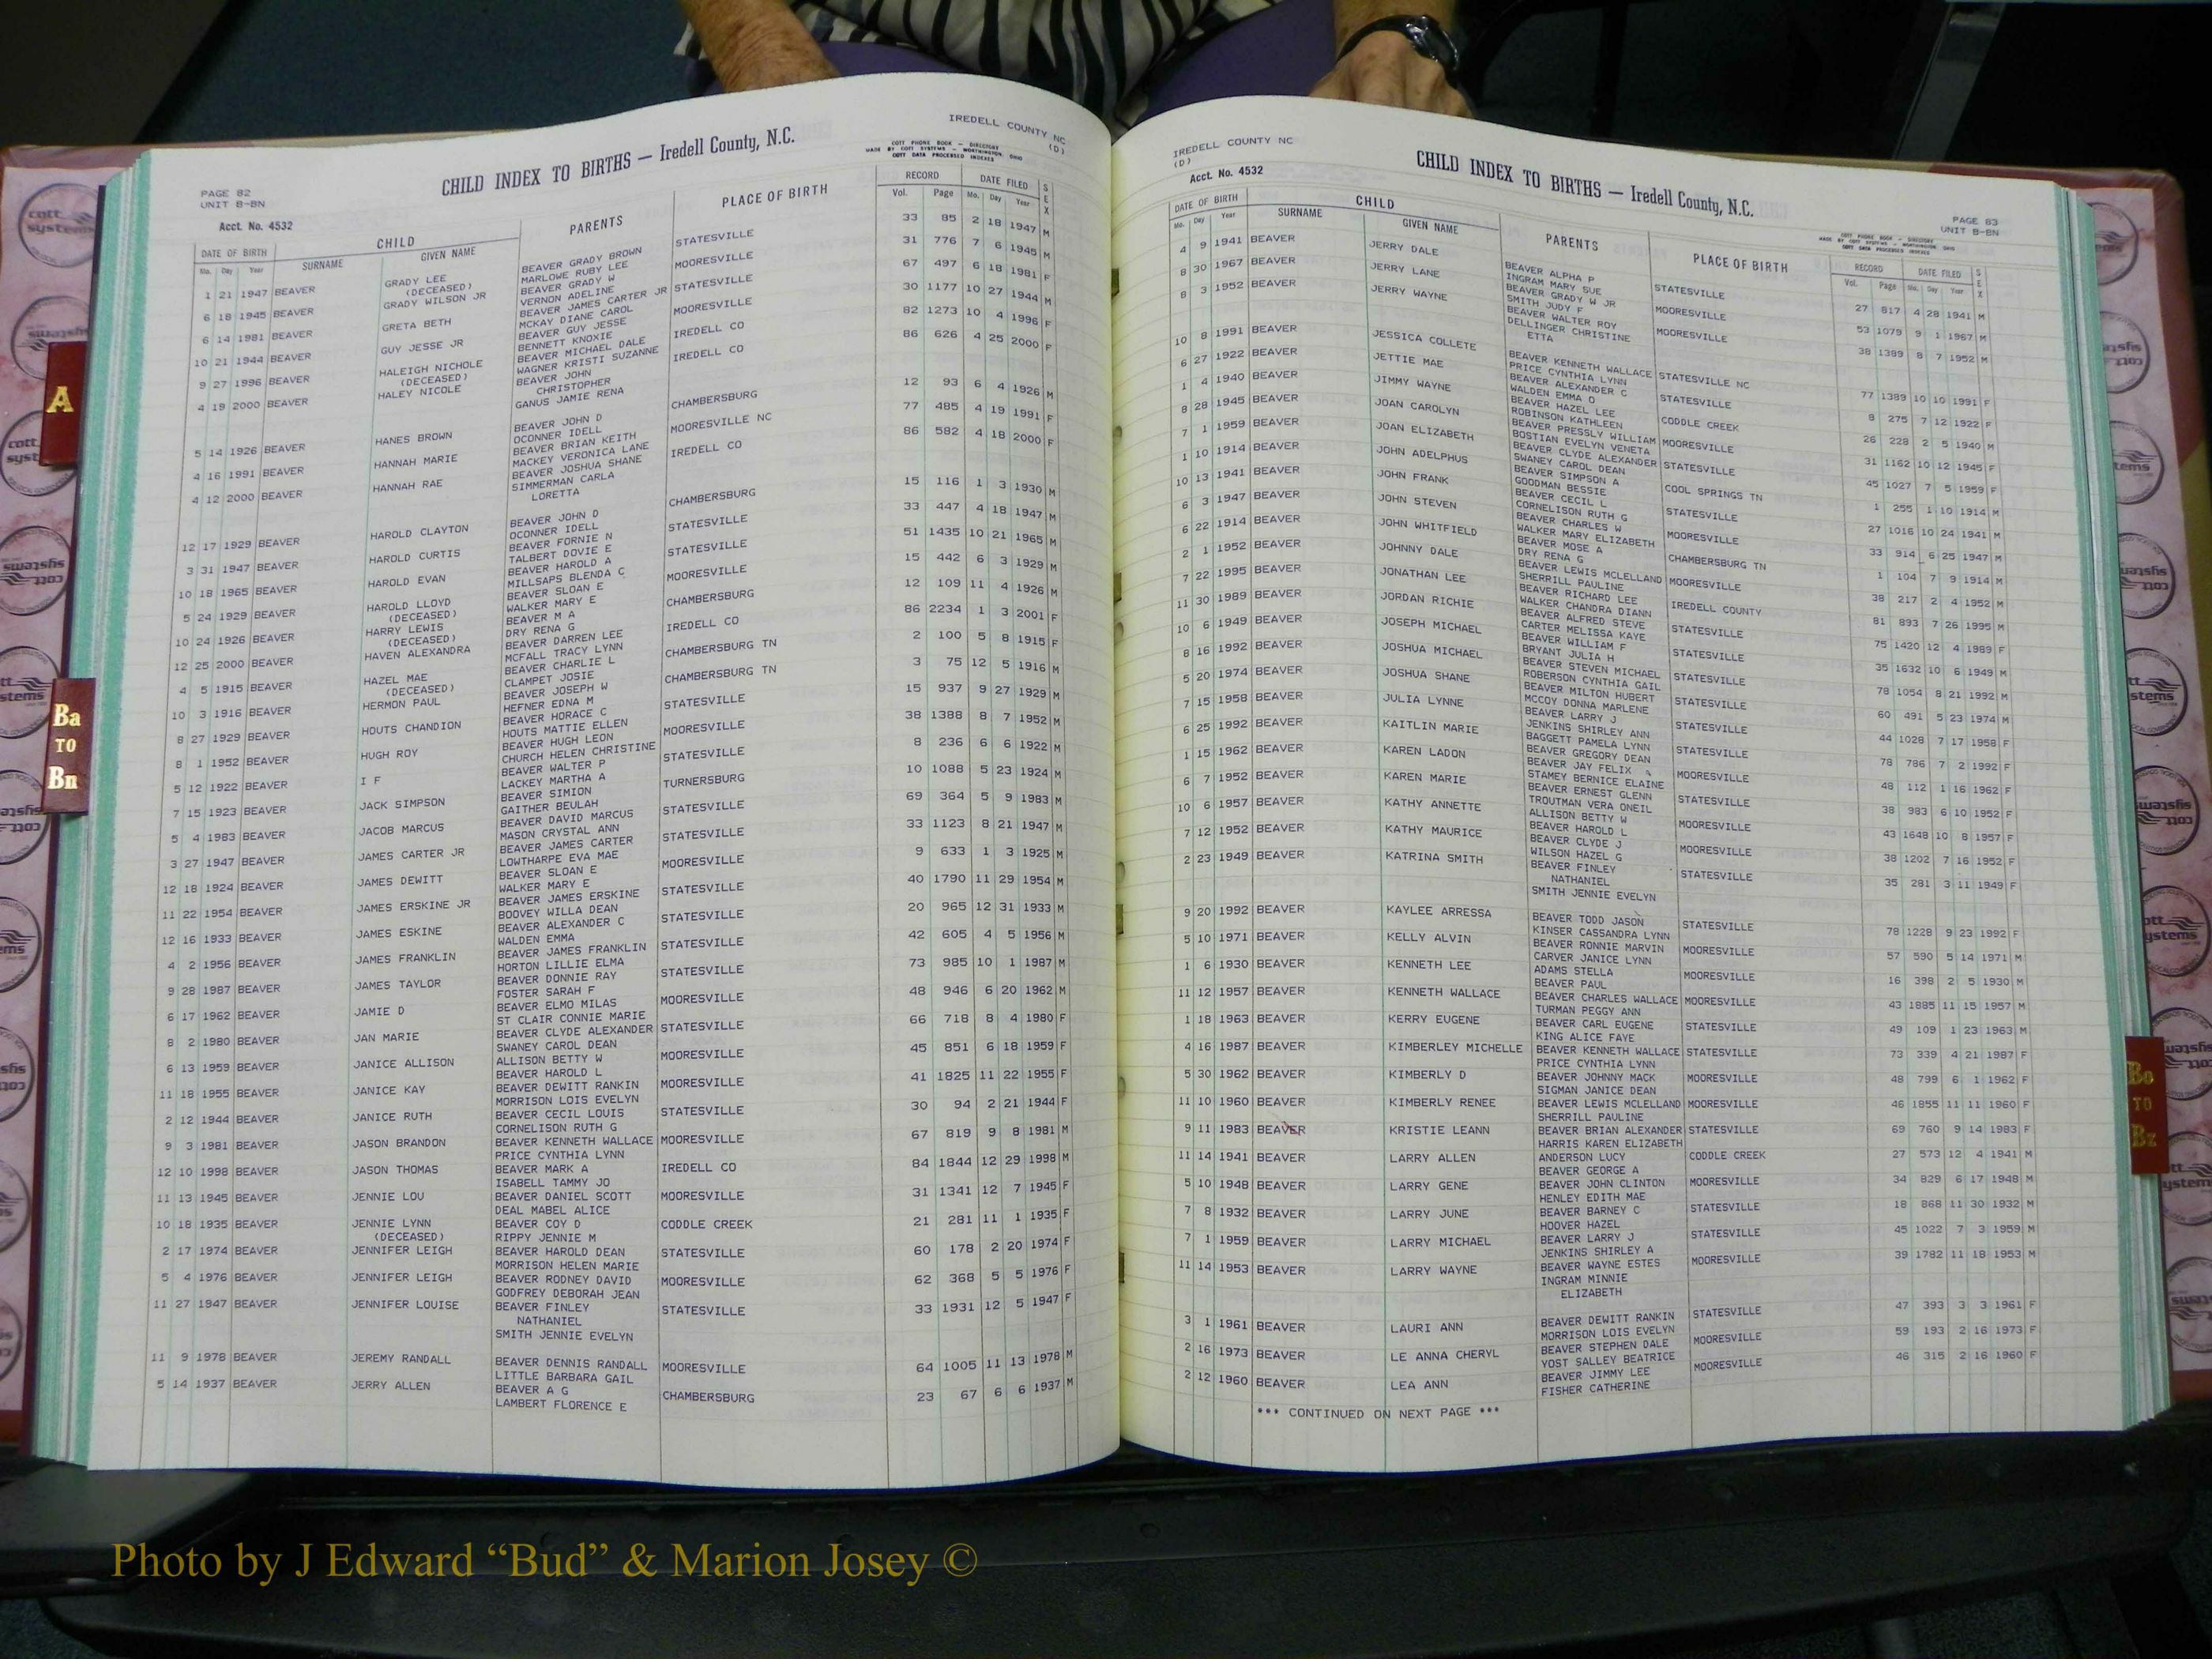 IREDELL COUNTY NC
(D)
CHILD INDEX TO BIRTHS — Iredell County, N.C.
COTT PHONE BOOK — DIRECTORY
MADE BY COTT SYSTEMS — WORTHINGTON, OHIO
COTT DATA PROCESSED INDEXES
PAGE 82
UNIT B-BN
Acct. No. 4532
DATE OF BIRTH CHILD PARENTS PLACE OF BIRTH RECORD DATE FILED SEX
Mo. Day Year SURNAME GIVEN NAME Vol. Page Mo. Day Year
1 21 1947 BEAVER GRADY LEE BEAVER GRADY BROWN STATESVILLE 33 85 2 18 1947 M
(DECEASED) MARLOWE RUBY LEE
6 18 1945 BEAVER GRADY WILSON JR BEAVER GRADY W MOORESVILLE 31 776 7 6 1945 M
VERNON ADELINE
6 14 1981 BEAVER GRETA BETH BEAVER JAMES CARTER JR STATESVILLE 67 497 6 18 1981 F
MCKAY DIANE CAROL
10 21 1944 BEAVER GUY JESSE JR BEAVER GUY JESSE MOORESVILLE 30 1177 10 27 1944 M
BENNETT KNOXIE
9 27 1996 BEAVER HALEIGH NICHOLE BEAVER MICHAEL DALE IREDELL CO 82 1273 10 4 1996 F
(DECEASED) WAGNER KRISTI SUZANNE
4 19 2000 BEAVER HALEY NICOLE BEAVER JOHN IREDELL CO 86 626 4 25 2000 F
CHRISTOPHER
GANUS JAMIE RENA
5 14 1926 BEAVER HANES BROWN BEAVER JOHN D CHAMBERSBURG 12 93 6 4 1926 M
OCONNER IDELL
4 16 1991 BEAVER HANNAH MARIE BEAVER BRIAN KEITH MOORESVILLE NC 77 485 4 19 1991 F
MACKEY VERONICA LANE
4 12 2000 BEAVER HANNAH RAE BEAVER JOSHUA SHANE IREDELL CO 86 582 4 18 2000 F
SIMMERMAN CARLA
LORETTA
12 17 1929 BEAVER HAROLD CLAYTON BEAVER JOHN D CHAMBERSBURG 15 116 1 3 1930 M
OCONNER IDELL
3 31 1947 BEAVER HAROLD CURTIS BEAVER FORNIE N STATESVILLE 33 447 4 18 1947 M
TALBERT DOVIE E
10 18 1965 BEAVER HAROLD EVAN BEAVER HAROLD A STATESVILLE 51 1435 10 21 1965 M
MILLSAPS BLENDA C
5 24 1929 BEAVER HAROLD LLOYD BEAVER SLOAN E MOORESVILLE 15 442 6 3 1929 M
(DECEASED) WALKER MARY E
10 24 1926 BEAVER HARRY LEWIS BEAVER M A CHAMBERSBURG 12 109 11 4 1926 M
(DECEASED) DRY RENA G
12 25 2000 BEAVER HAVEN ALEXANDRA BEAVER DARREN LEE IREDELL CO 86 2234 1 3 2001 F
MCFALL TRACY LYNN
4 5 1915 BEAVER HAZEL MAE BEAVER CHARLIE L CHAMBERSBURG TN 2 100 5 8 1915 F
(DECEASED) CLAMPET JOSIE
10 3 1916 BEAVER HERMON PAUL BEAVER JOSEPH W CHAMBERSBURG TN 3 75 12 5 1916 M
HEFNER EDNA M
8 27 1929 BEAVER HOUTS CHANDION BEAVER HORACE C STATESVILLE 15 937 9 27 1929 M
HOUTS MATTIE ELLEN
8 1 1952 BEAVER HUGH ROY BEAVER HUGH LEON MOORESVILLE 38 1388 8 7 1952 M
CHURCH HELEN CHRISTINE
5 12 1922 BEAVER I F BEAVER WALTER P STATESVILLE 8 236 6 6 1922 M
LACKEY MARTHA A
7 15 1923 BEAVER JACK SIMPSON BEAVER SIMION TURNERSBURG 10 1088 5 23 1924 M
GAITHER BEULAH
5 4 1983 BEAVER JACOB MARCUS BEAVER DAVID MARCUS STATESVILLE 69 364 5 9 1983 M
MASON CRYSTAL ANN
3 27 1947 BEAVER JAMES CARTER JR BEAVER JAMES CARTER STATESVILLE 33 1123 8 21 1947 M
LOWTHARPE EVA MAE
12 18 1924 BEAVER JAMES DEWITT BEAVER SLOAN E MOORESVILLE 9 633 1 3 1925 M
WALKER MARY E
11 22 1954 BEAVER JAMES ERSKINE JR BEAVER JAMES ERSKINE STATESVILLE 40 1790 11 29 1954 M
BOOVEY WILLA DEAN
12 16 1933 BEAVER JAMES ESKINE BEAVER ALEXANDER C STATESVILLE 20 965 12 31 1933 M
WALDEN EMMA
4 2 1956 BEAVER JAMES FRANKLIN BEAVER JAMES FRANKLIN STATESVILLE 42 605 4 5 1956 M
HORTON LILLIE ELMA
9 28 1987 BEAVER JAMES TAYLOR BEAVER DONNIE RAY STATESVILLE 73 985 10 1 1987 M
FOSTER SARAH F
6 17 1962 BEAVER JAMIE D BEAVER ELMO MILAS MOORESVILLE 48 946 6 20 1962 M
ST CLAIR CONNIE MARIE
8 2 1980 BEAVER JAN MARIE BEAVER CLYDE ALEXANDER STATESVILLE 66 718 8 4 1980 F
SWANEY CAROL DEAN
6 13 1959 BEAVER JANICE ALLISON ALLISON BETTY W MOORESVILLE 45 851 6 18 1959 F
BEAVER HAROLD L
11 18 1955 BEAVER JANICE KAY BEAVER DEWITT RANKIN MOORESVILLE 41 1825 11 22 1955 F
MORRISON LOIS EVELYN
2 12 1944 BEAVER JANICE RUTH BEAVER CECIL LOUIS STATESVILLE 30 94 2 21 1944 F
CORNELISON RUTH G
9 3 1981 BEAVER JASON BRANDON BEAVER KENNETH WALLACE MOORESVILLE 67 819 9 8 1981 M
PRICE CYNTHIA LYNN
12 10 1998 BEAVER JASON THOMAS BEAVER MARK A IREDELL CO 84 1844 12 29 1998 M
ISABELL TAMMY JO
11 13 1945 BEAVER JENNIE LOU BEAVER DANIEL SCOTT MOORESVILLE 31 1341 12 7 1945 F
DEAL MABEL ALICE
10 18 1935 BEAVER JENNIE LYNN BEAVER COY D CODDLE CREEK 21 281 11 1 1935 F
(DECEASED) RIPPY JENNIE M
2 17 1974 BEAVER JENNIFER LEIGH BEAVER HAROLD DEAN STATESVILLE 60 178 2 20 1974 F
MORRISON HELEN MARIE
5 4 1976 BEAVER JENNIFER LEIGH BEAVER RODNEY DAVID MOORESVILLE 62 368 5 5 1976 F
GODFREY DEBORAH JEAN
11 27 1947 BEAVER JENNIFER LOUISE BEAVER FINLEY STATESVILLE 33 1931 12 5 1947 F
NATHANIEL
SMITH JENNIE EVELYN
11 9 1978 BEAVER JEREMY RANDALL BEAVER DENNIS RANDALL MOORESVILLE 64 1005 11 13 1978 M
LITTLE BARBARA GAIL
5 14 1937 BEAVER JERRY ALLEN BEAVER A G CHAMBERSBURG 23 67 6 6 1937 M
LAMBERT FLORENCE E
IREDELL COUNTY NC
(D)
Acct. No. 4532
CHILD INDEX TO BIRTHS — Iredell County, N.C.
PAGE 83
UNIT B-BN
COTT PHONE BOOK — DIRECTORY
MADE BY COTT SYSTEMS — WORTHINGTON, OHIO
COTT DATA PROCESSED INDEXES
DATE OF BIRTH CHILD PARENTS PLACE OF BIRTH RECORD DATE FILED SEX
Mo. Day Year SURNAME GIVEN NAME Vol. Page Mo. Day Year
4 9 1941 BEAVER JERRY DALE BEAVER ALPHA P STATESVILLE 27 817 4 28 1941 M
INGRAM MARY SUE
8 30 1967 BEAVER JERRY LANE BEAVER GRADY W JR MOORESVILLE 53 1079 9 1 1967 M
SMITH JUDY F
8 3 1952 BEAVER JERRY WAYNE BEAVER WALTER ROY MOORESVILLE 38 1389 8 7 1952 M
DELLINGER CHRISTINE
ETTA
10 8 1991 BEAVER JESSICA COLLETE BEAVER KENNETH WALLACE STATESVILLE NC 77 1389 10 10 1991 F
PRICE CYNTHIA LYNN
6 27 1922 BEAVER JETTIE MAE BEAVER ALEXANDER C STATESVILLE 8 275 7 12 1922 F
WALDEN EMMA O
1 4 1940 BEAVER JIMMY WAYNE BEAVER HAZEL LEE CODDLE CREEK 26 228 2 5 1940 M
ROBINSON KATHLEEN
8 28 1945 BEAVER JOAN CAROLYN BEAVER PRESSLY WILLIAM MOORESVILLE 31 1162 10 12 1945 F
BOSTIAN EVELYN VENETA
7 1 1959 BEAVER JOAN ELIZABETH BEAVER CLYDE ALEXANDER STATESVILLE 45 1027 7 5 1959 F
SWANEY CAROL DEAN
1 10 1914 BEAVER JOHN ADELPHUS BEAVER SIMPSON A COOL SPRINGS TN 1 255 1 10 1914 M
GOODMAN BESSIE
10 13 1941 BEAVER JOHN FRANK BEAVER CECIL L STATESVILLE 27 1016 10 24 1941 M
CORNELISON RUTH G
6 3 1947 BEAVER JOHN STEVEN BEAVER CHARLES W MOORESVILLE 33 914 6 25 1947 M
WALKER MARY ELIZABETH
6 22 1914 BEAVER JOHN WHITFIELD BEAVER MOSE A CHAMBERSBURG TN 1 104 7 9 1914 M
DRY RENA G
2 1 1952 BEAVER JOHNNY DALE BEAVER LEWIS MCLELLAND MOORESVILLE 38 217 2 4 1952 M
SHERRILL PAULINE
7 22 1995 BEAVER JONATHAN LEE BEAVER RICHARD LEE IREDELL COUNTY 81 893 7 26 1995 M
WALKER CHANDRA DIANN
11 30 1989 BEAVER JORDAN RICHIE BEAVER ALFRED STEVE STATESVILLE 75 1420 12 4 1989 F
CARTER MELISSA KAYE
10 6 1949 BEAVER JOSEPH MICHAEL BEAVER WILLIAM F STATESVILLE 35 1632 10 6 1949 M
BRYANT JULIA H
8 16 1992 BEAVER JOSHUA MICHAEL BEAVER STEVEN MICHAEL STATESVILLE 78 1054 8 21 1992 M
ROBERSON CYNTHIA GAIL
5 20 1974 BEAVER JOSHUA SHANE BEAVER MILTON HUBERT STATESVILLE 60 491 5 23 1974 M
MCCOY DONNA MARLENE
7 15 1958 BEAVER JULIA LYNNE BEAVER LARRY J STATESVILLE 44 1028 7 17 1958 F
JENKINS SHIRLEY ANN
6 25 1992 BEAVER KAITLIN MARIE BAGGETT PAMELA LYNN STATESVILLE 78 786 7 2 1992 F
BEAVER GREGORY DEAN
1 15 1962 BEAVER KAREN LADON BEAVER JAY FELIX MOORESVILLE 48 112 1 16 1962 F
STAMEY BERNICE ELAINE
6 7 1952 BEAVER KAREN MARIE BEAVER ERNEST GLENN STATESVILLE 38 983 6 10 1952 F
TROUTMAN VERA ONEIL
10 6 1957 BEAVER KATHY ANNETTE ALLISON BETTY W MOORESVILLE 43 1648 10 8 1957 F
BEAVER HAROLD L
7 12 1952 BEAVER KATHY MAURICE BEAVER CLYDE J MOORESVILLE 38 1202 7 16 1952 F
WILSON HAZEL G
2 23 1949 BEAVER KATRINA SMITH BEAVER FINLEY STATESVILLE 35 281 3 11 1949 F
NATHANIEL
SMITH JENNIE EVELYN
9 20 1992 BEAVER KAYLEE ARRESSA BEAVER TODD JASON STATESVILLE 78 1228 9 23 1992 F
KINSER CASSANDRA LYNN
5 10 1971 BEAVER KELLY ALVIN BEAVER RONNIE MARVIN MOORESVILLE 57 590 5 14 1971 M
CARVER JANICE LYNN
1 6 1930 BEAVER KENNETH LEE ADAMS STELLA MOORESVILLE 16 398 2 5 1930 M
BEAVER PAUL
11 12 1957 BEAVER KENNETH WALLACE BEAVER CHARLES WALLACE MOORESVILLE 43 1885 11 15 1957 M
TURMAN PEGGY ANN
1 18 1963 BEAVER KERRY EUGENE BEAVER CARL EUGENE STATESVILLE 49 109 1 23 1963 M
KING ALICE FAYE
4 16 1987 BEAVER KIMBERLEY MICHELLE BEAVER KENNETH WALLACE STATESVILLE 73 339 4 21 1987 F
PRICE CYNTHIA LYNN
5 30 1962 BEAVER KIMBERLY D BEAVER JOHNNY MACK MOORESVILLE 48 799 6 1 1962 F
SIGMAN JANICE DEAN
11 10 1960 BEAVER KIMBERLY RENEE BEAVER LEWIS MCLELLAND MOORESVILLE 46 1855 11 11 1960 F
SHERRILL PAULINE
9 11 1983 BEAVER KRISTIE LEANN BEAVER BRIAN ALEXANDER STATESVILLE 69 760 9 14 1983 F
HARRIS KAREN ELIZABETH
11 14 1941 BEAVER LARRY ALLEN ANDERSON LUCY CODDLE CREEK 27 573 12 4 1941 M
BEAVER GEORGE A
5 10 1948 BEAVER LARRY GENE BEAVER JOHN CLINTON MOORESVILLE 34 829 6 17 1948 M
HENLEY EDITH MAE
7 8 1932 BEAVER LARRY JUNE BEAVER BARNEY C STATESVILLE 18 868 11 30 1932 M
HOOVER HAZEL
7 1 1959 BEAVER LARRY MICHAEL BEAVER LARRY J STATESVILLE 45 1022 7 3 1959 M
JENKINS SHIRLEY A
11 14 1953 BEAVER LARRY WAYNE BEAVER WAYNE ESTES MOORESVILLE 39 1782 11 18 1953 M
INGRAM MINNIE
ELIZABETH
3 1 1961 BEAVER LAURI ANN BEAVER DEWITT RANKIN STATESVILLE 47 393 3 3 1961 F
MORRISON LOIS EVELYN
2 16 1973 BEAVER LE ANNA CHERYL BEAVER STEPHEN DALE MOORESVILLE 59 193 2 16 1973 F
YOST SALLEY BEATRICE
2 12 1960 BEAVER LEA ANN BEAVER JIMMY LEE MOORESVILLE 46 315 2 16 1960 F
FISHER CATHERINE
*** CONTINUED ON NEXT PAGE ***
A
Ba
TO
Bn
Bo
TO
Bz
cott
systems
Photo by J Edward “Bud” & Marion Josey ©